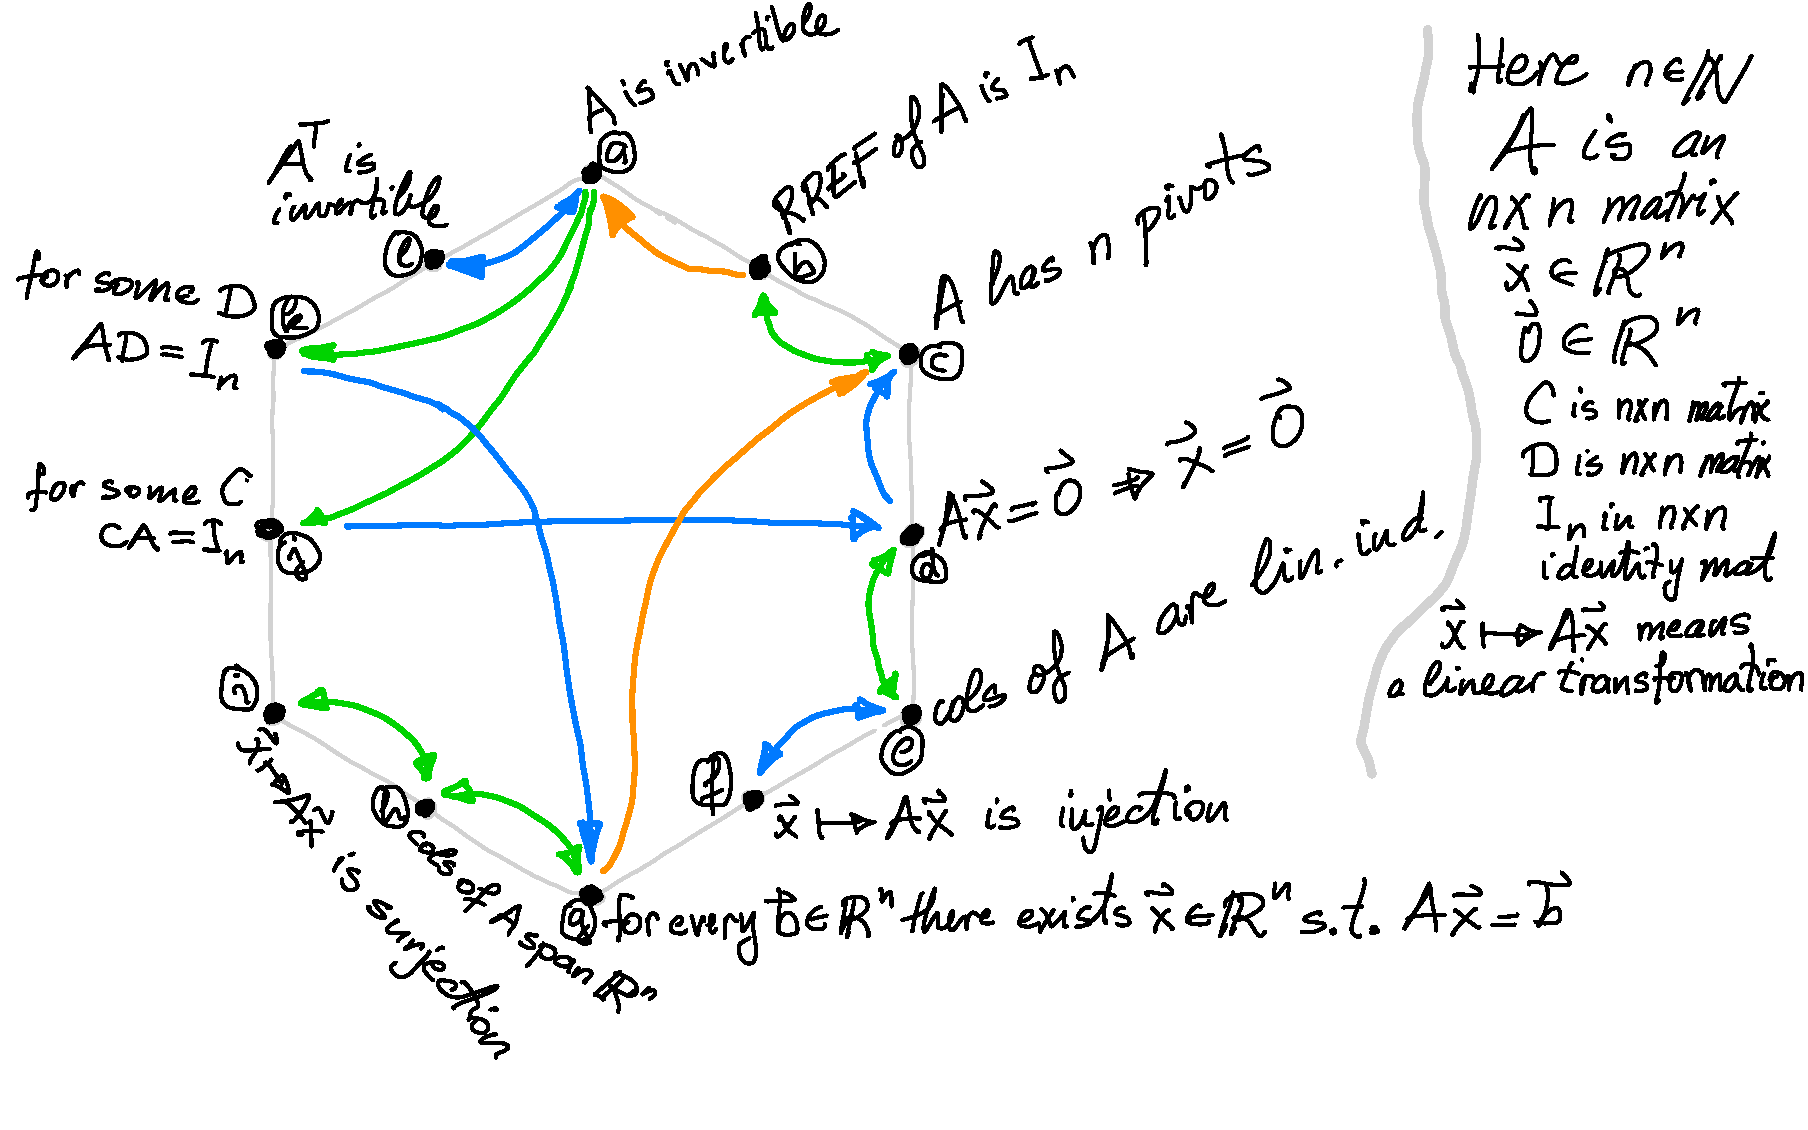 A is invertible
ⓐ
RREF of A is Iₙ
ⓑ
A has n pivots
ⓒ
Ax⃗ = 0⃗ ⇒ x⃗ = 0⃗
ⓓ
cols of A are lin. ind.
ⓔ
ⓕ
x⃗ ↦ Ax⃗ is injection
ⓖ for every b⃗ ∈ ℝⁿ there exists x⃗ ∈ ℝⁿ s.t. Ax⃗ = b⃗
ⓗ cols of A span ℝⁿ
ⓘ
x⃗ ↦ Ax⃗ is surjection
for some C
CA = Iₙ
ⓙ
for some D
ⓚ
AD = Iₙ
Aᵀ is
invertible
ⓛ
Here n ∈ ℕ
A is an
n×n matrix
x⃗ ∈ ℝⁿ
0⃗ ∈ ℝⁿ
C is n×n matrix
D is n×n matrix
Iₙ in n×n
identity mat
x⃗ ↦ Ax⃗ means
a linear transformation